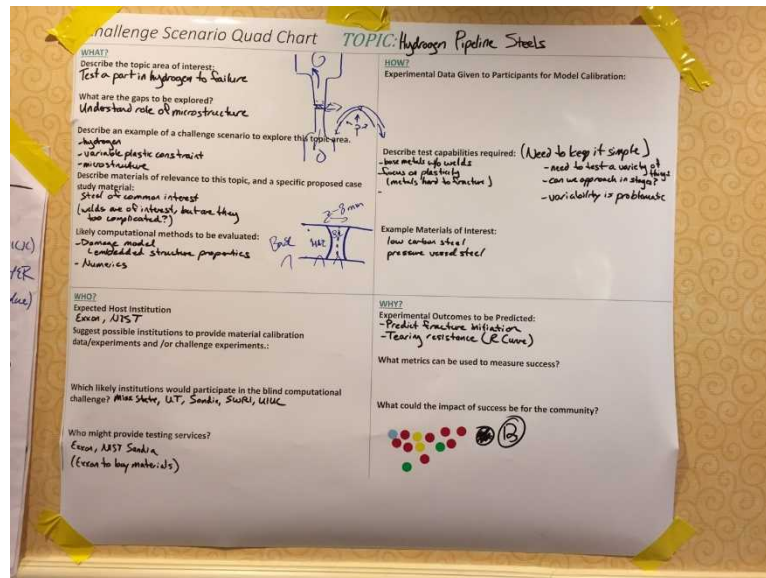 Challenge Scenario Quad Chart TOPIC: Hydrogen Pipeline Steels
WHAT?
Describe the topic area of interest:
Test a part in hydrogen to failure
What are the gaps to be explored?
Understand role of microstructure
Describe an example of a challenge scenario to explore this topic area.
-hydrogen
-variable plastic constraint
-microstructure
Describe materials of relevance to this topic, and a specific proposed case
study material:
Steel of common interest
(welds are of interest, but are they
too complicated?)
~8mm
Likely computational methods to be evaluated:
-Damage model
embedded structure properties
- Numerics
Base HAZ
HOW?
Experimental Data Given to Participants for Model Calibration:
Describe test capabilities required: (Need to keep it simple)
-base metals w/o welds
-focus on plasticity
(metals hard to fracture)
-
-need to test a variety of things
-can we approach in stages?
-variability is problematic
Example Materials of Interest:
low carbon steel
pressure vessel steel
WHO?
Expected Host Institution
Exxon, NIST
Suggest possible institutions to provide material calibration
data/experiments and /or challenge experiments.:
Which likely institutions would participate in the blind computational
challenge? Miss State, UT, Sandia, SWRI, UIUC
Who might provide testing services?
Exxon, NIST Sandia
(Exxon to buy materials)
WHY?
Experimental Outcomes to be Predicted:
-Predict fracture initiation
-Tearing resistance (R Curve)
What metrics can be used to measure success?
What could the impact of success be for the community?
B